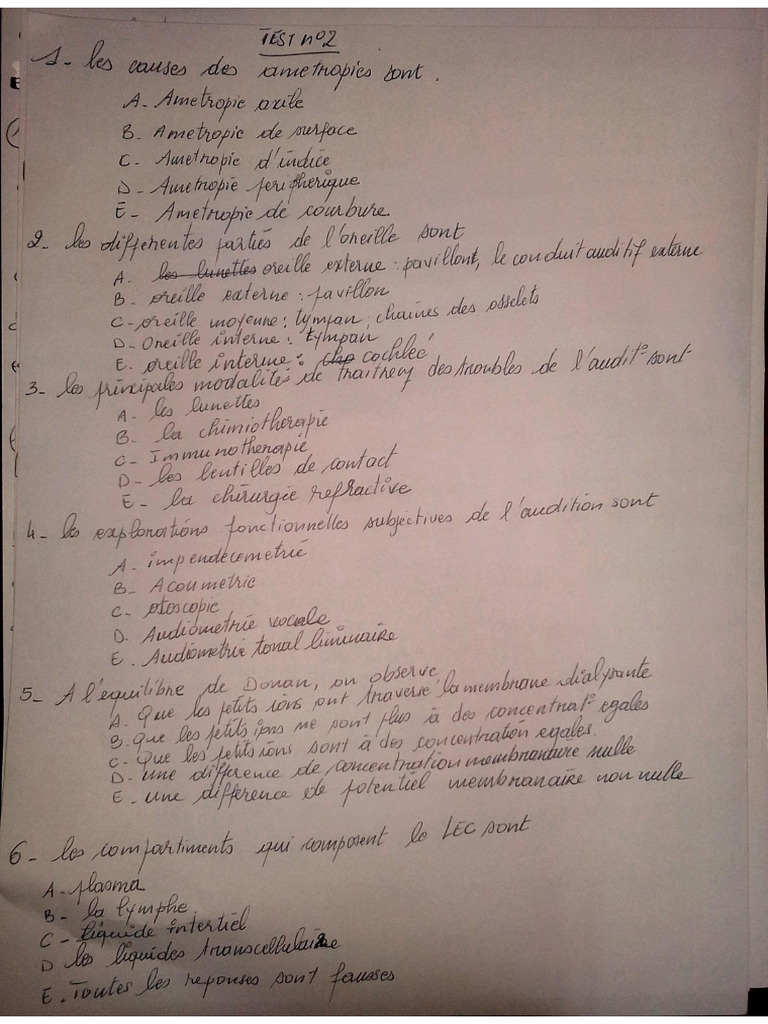 TEST n°2
1- les causes des ametropies sont.
A- Ametropie axile
B- Ametropie de surface
C- Ametropie d'indice
D- Ametropie peripherique
E- Ametropie de courbure.
2- les differentes parties de l'oreille sont
A. les lunettes oreille externe : pavillont, le conduit auditif externe
B- oreille externe : pavillon
C- oreille moyenne : tympan, chaines des osselets
D- Oreille interne : tympan
E. oreille interne : cochleé
3- les principales modalités de des troubles de l'audit° sont
A- les lunettes
B- la chimiotherapie
C- Immunotherapie
D- les lentilles de contact
E- la chirurgie refractive
4- les explorations fonctionnelles subjectives de l'audition sont
A- impendecometrie
B- Acoumetrie
C- otoscopie
D. Audiometrie vocale
E. Audiometrie tonal liminaire
5- A l'equilibre de Donan, on observe
A. Que les petits ions ont traversé la membrane dialysante
B. Que les petits ions ne sont plus à des concentrat° egales
C- Que les petits ions sont à des concentration egales.
D- une difference de concentration membranaire nulle
E- une difference de potentiel membranaire non nulle
6- les compartiments qui composent le LEC sont
A- plasma
B- la lymphe
C- liquide intertiel
D les liquides transcellulaire
E. Toutes les reponses sont fausses